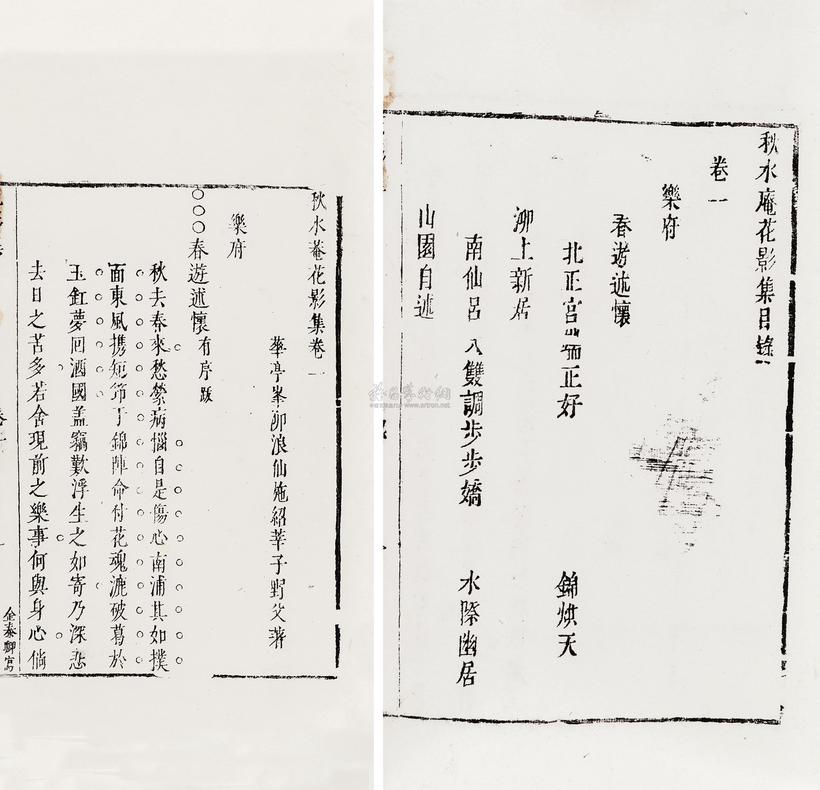 秋水庵花影集目錄
卷一
樂府
春遊述懷
北正宮端正好 錦烘天
泖上新居
南仙呂入雙調步步嬌 水際幽居
山園自述
秋水菴花影集卷一
華亭峯泖浪仙施紹莘子野父著
樂府
○○○春遊述懷有序跋
秋去春來愁縈病惱自是傷心南浦其如撲
面東風携短笻于錦陣命付花魂漉破葛於
玉釭夢囘酒國盖竊歎浮生之如寄乃深悲
去日之苦多若舍現前之樂事何與身心倘
金泰卿寫